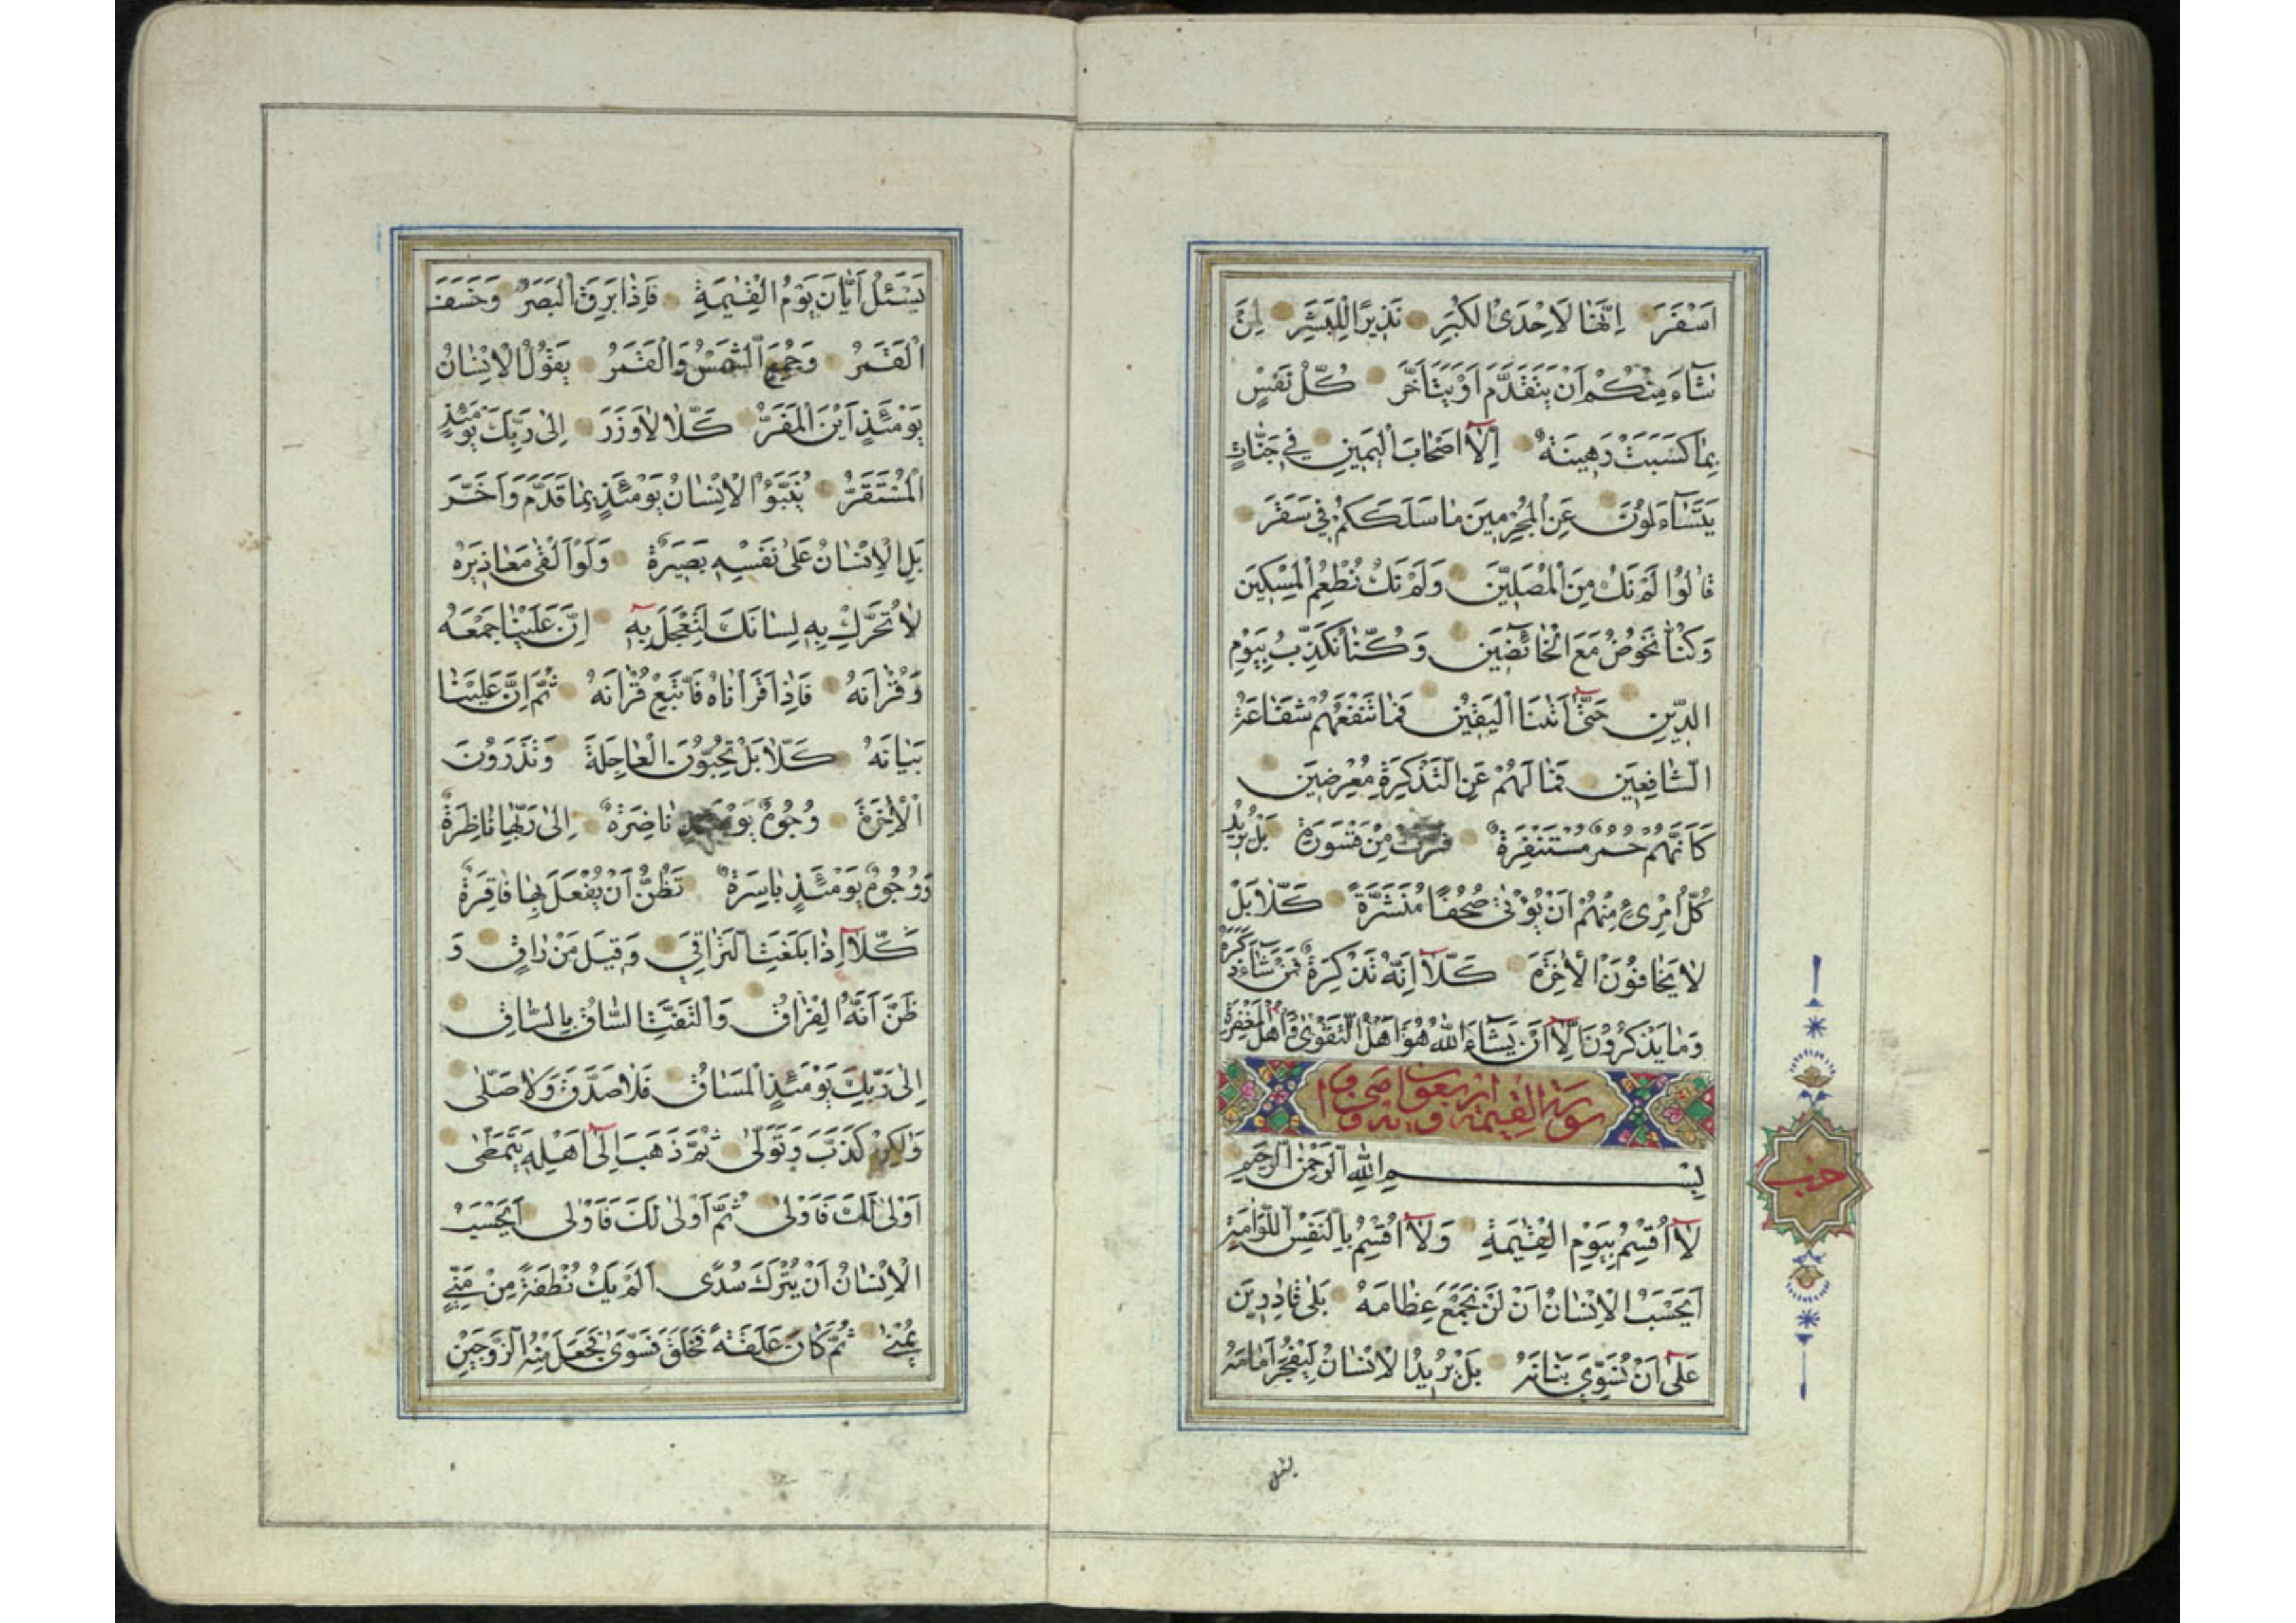 اَسْفَرَ اِنَّهَا لَاِحْدَى الْكُبَرِ نَذِيرًا لِلْبَشَرِ لِمَنْ
شَآءَ مِنْكُمْ اَنْ يَتَقَدَّمَ اَوْ يَتَاَخَّرَ كُلُّ نَفْسٍ
بِمَا كَسَبَتْ رَهِينَةٌ اِلَّآ اَصْحَابَ الْيَمِينِ فِي جَنَّاتٍ
يَتَسَآءَلُونَ عَنِ الْمُجْرِمِينَ مَا سَلَكَكُمْ فِي سَقَرَ
قَالُوا لَمْ نَكُ مِنَ الْمُصَلِّينَ وَلَمْ نَكُ نُطْعِمُ الْمِسْكِينَ
وَكُنَّا نَخُوضُ مَعَ الْخَآئِضِينَ وَكُنَّا نُكَذِّبُ بِيَوْمِ
الدِّينِ حَتَّىٰ اَتٰىنَا الْيَقِينُ فَمَا تَنْفَعُهُمْ شَفَاعَةُ
الشَّافِعِينَ فَمَا لَهُمْ عَنِ التَّذْكِرَةِ مُعْرِضِينَ
كَاَنَّهُمْ حُمُرٌ مُسْتَنْفِرَةٌ فَرَّتْ مِنْ قَسْوَرَةٍ بَلْ يُرِيدُ
كُلُّ امْرِئٍ مِنْهُمْ اَنْ يُؤْتٰى صُحُفًا مُنَشَّرَةً كَلَّا بَلْ
لَا يَخَافُونَ الْاٰخِرَةَ كَلَّآ اِنَّهُ تَذْكِرَةٌ فَمَنْ شَآءَ ذَكَرَهُ
وَمَا يَذْكُرُونَ اِلَّآ اَنْ يَشَآءَ اللّٰهُ هُوَ اَهْلُ التَّقْوٰى وَاَهْلُ الْمَغْفِرَةِ
سورة القيمة اربعون
حزب
بِسْمِ اللّٰهِ الرَّحْمٰنِ الرَّحِيمِ
لَآ اُقْسِمُ بِيَوْمِ الْقِيٰمَةِ وَلَآ اُقْسِمُ بِالنَّفْسِ اللَّوَّامَةِ
اَيَحْسَبُ الْاِنْسَانُ اَنْ لَنْ نَجْمَعَ عِظَامَهُ بَلٰى قَادِرِينَ
عَلٰٓى اَنْ نُسَوِّيَ بَنَانَهُ بَلْ يُرِيدُ الْاِنْسَانُ لِيَفْجُرَ اَمَامَهُ
يسئل
يَسْئَلُ اَيَّانَ يَوْمُ الْقِيٰمَةِ فَاِذَا بَرِقَ الْبَصَرُ وَخَسَفَ
الْقَمَرُ وَجُمِعَ الشَّمْسُ وَالْقَمَرُ يَقُولُ الْاِنْسَانُ
يَوْمَئِذٍ اَيْنَ الْمَفَرُّ كَلَّا لَا وَزَرَ اِلٰى رَبِّكَ يَوْمَئِذٍ
الْمُسْتَقَرُّ يُنَبَّؤُ الْاِنْسَانُ يَوْمَئِذٍ بِمَا قَدَّمَ وَاَخَّرَ
بَلِ الْاِنْسَانُ عَلٰى نَفْسِهِ بَصِيرَةٌ وَلَوْ اَلْقٰى مَعَاذِيرَهُ
لَا تُحَرِّكْ بِهِ لِسَانَكَ لِتَعْجَلَ بِهِ اِنَّ عَلَيْنَا جَمْعَهُ
وَقُرْاٰنَهُ فَاِذَا قَرَاْنَاهُ فَاتَّبِعْ قُرْاٰنَهُ ثُمَّ اِنَّ عَلَيْنَا
بَيَانَهُ كَلَّا بَلْ تُحِبُّونَ الْعَاجِلَةَ وَتَذَرُونَ
الْاٰخِرَةَ وُجُوهٌ يَوْمَئِذٍ نَاضِرَةٌ اِلٰى رَبِّهَا نَاظِرَةٌ
وَوُجُوهٌ يَوْمَئِذٍ بَاسِرَةٌ تَظُنُّ اَنْ يُفْعَلَ بِهَا فَاقِرَةٌ
كَلَّآ اِذَا بَلَغَتِ التَّرَاقِيَ وَقِيلَ مَنْ رَاقٍ وَ
ظَنَّ اَنَّهُ الْفِرَاقُ وَالْتَفَّتِ السَّاقُ بِالسَّاقِ
اِلٰى رَبِّكَ يَوْمَئِذٍ الْمَسَاقُ فَلَا صَدَّقَ وَلَا صَلّٰى
وَلٰكِنْ كَذَّبَ وَتَوَلّٰى ثُمَّ ذَهَبَ اِلٰٓى اَهْلِهِ يَتَمَطّٰى
اَوْلٰى لَكَ فَاَوْلٰى ثُمَّ اَوْلٰى لَكَ فَاَوْلٰى اَيَحْسَبُ
الْاِنْسَانُ اَنْ يُتْرَكَ سُدًى اَلَمْ يَكُ نُطْفَةً مِنْ مَنِيٍّ
يُمْنٰى ثُمَّ كَانَ عَلَقَةً فَخَلَقَ فَسَوّٰى فَجَعَلَ مِنْهُ الزَّوْجَيْنِ